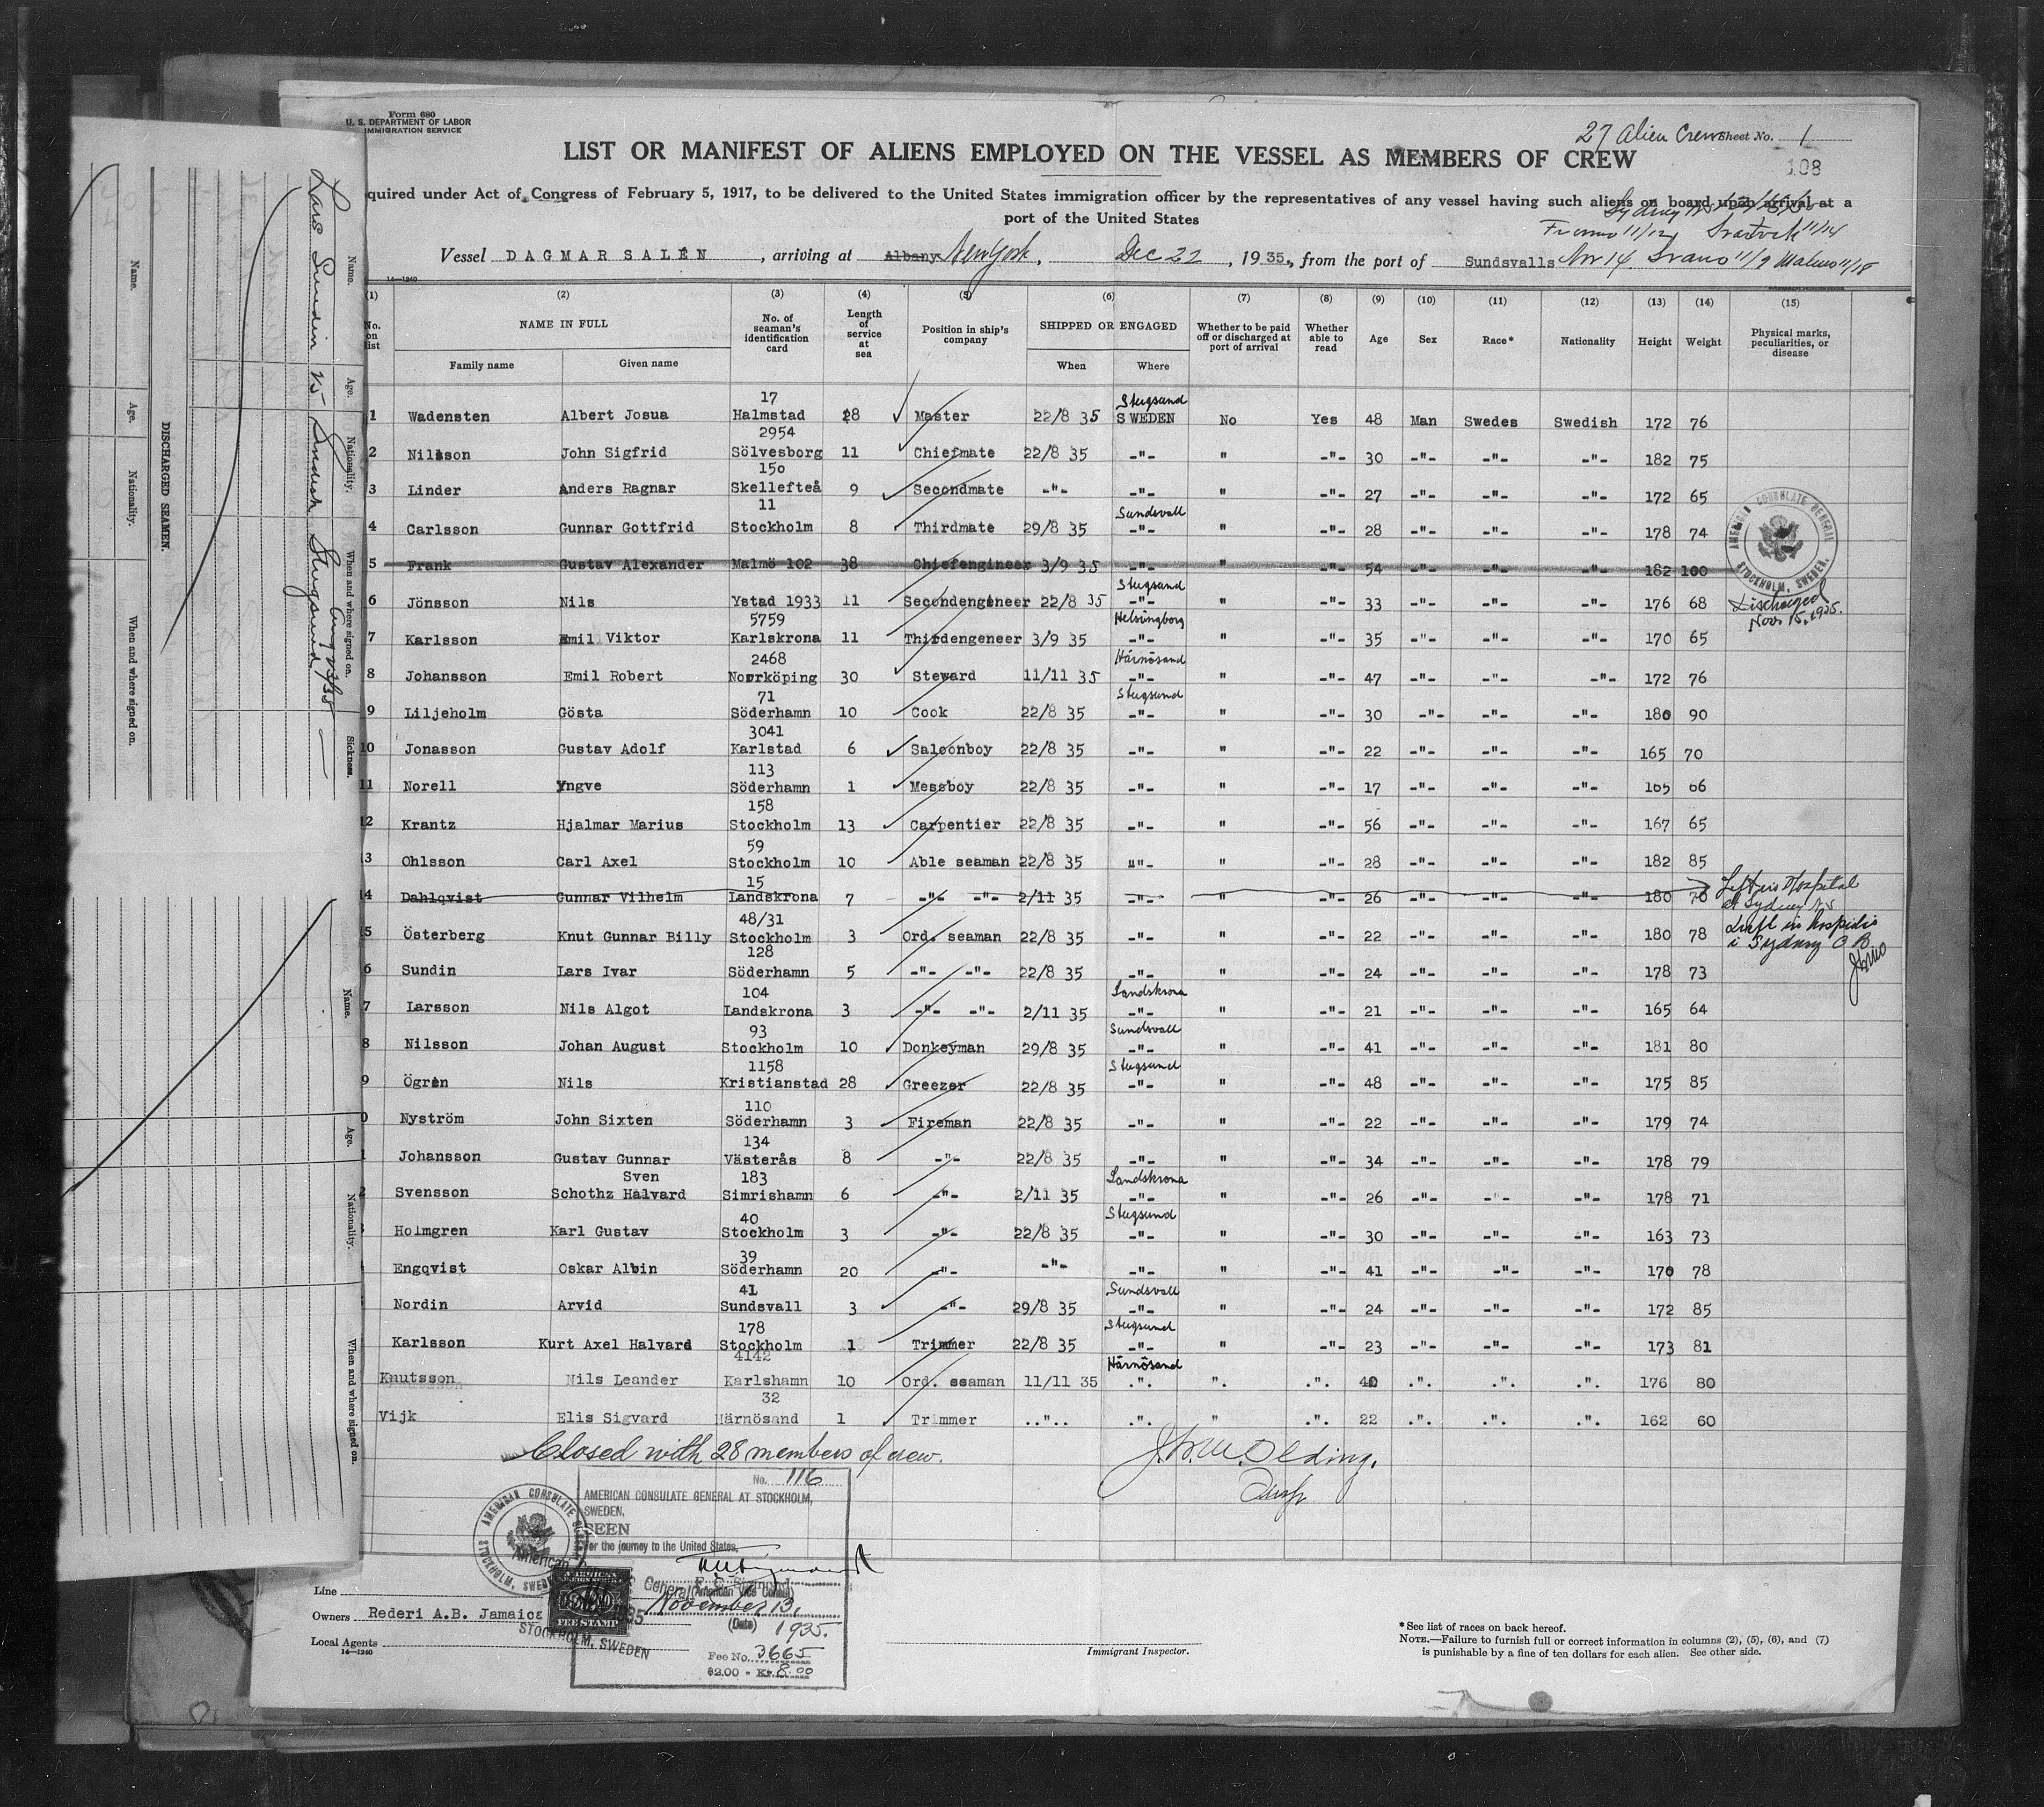 Form 680
U. S. DEPARTMENT OF LABOR
IMMIGRATION SERVICE
27 Alien Crew Sheet No. 1
108
LIST OR MANIFEST OF ALIENS EMPLOYED ON THE VESSEL AS MEMBERS OF CREW
quired under Act of Congress of February 5, 1917, to be delivered to the United States immigration officer by the representatives of any vessel having such aliens on board upon arrival at a
port of the United States
Vessel DAGMAR SALÉN, arriving at Albany New York, Dec 22, 1935, from the port of Sundsvalls Nov 14
14—1240
(1) (2) (3) (4) (5) (6) (7) (8) (9) (10) (11) (12) (13) (14) (15)
No. on list NAME IN FULL No. of seaman's identification card Length of service at sea Position in ship's company SHIPPED OR ENGAGED Whether to be paid off or discharged at port of arrival Whether able to read Age Sex Race* Nationality Height Weight Physical marks, peculiarities, or disease
Family name Given name When Where
17 Stugsund
1 Wadensten Albert Josua Halmstad 28 Master 22/8 35 SWEDEN No Yes 48 Man Swedes Swedish 172 76
2954
2 Nilsson John Sigfrid Sölvesborg 11 Chiefmate 22/8 35 -"- " -"- 30 -"- -"- -"- 182 75
150
3 Linder Anders Ragnar Skellefteå 9 Secondmate -"- -"- " -"- 27 -"- -"- -"- 172 65
11 Sundsvall
4 Carlsson Gunnar Gottfrid Stockholm 8 Thirdmate 29/8 35 -"- " -"- 28 -"- -"- -"- 178 74
5 Frank Gustav Alexander Malmö 102 38 Chiefengineer 3/9 35 -"- " -"- 54 -"- -"- -"- 182 100
Stugsund
6 Jönsson Nils Ystad 1933 11 Secondengeneer 22/8 35 -"- " -"- 33 -"- -"- -"- 176 68 Discharged
Nov. 15, 1935.
5759 Helsingborg
7 Karlsson Emil Viktor Karlskrona 11 Thirdengeneer 3/9 35 -"- " -"- 35 -"- -"- -"- 170 65
2468 Härnösand
8 Johansson Emil Robert Norrköping 30 Steward 11/11 35 -"- " -"- 47 -"- -"- -"- 172 76
71 Stugsund
9 Liljeholm Gösta Söderhamn 10 Cook 22/8 35 -"- " -"- 30 -"- -"- -"- 180 90
3041
10 Jonasson Gustav Adolf Karlstad 6 Saloonboy 22/8 35 -"- " -"- 22 -"- -"- -"- 165 70
113
11 Norell Yngve Söderhamn 1 Messboy 22/8 35 -"- " -"- 17 -"- -"- -"- 165 66
158
12 Krantz Hjalmar Marius Stockholm 13 Carpentier 22/8 35 -"- " -"- 56 -"- -"- -"- 167 65
59
3 Ohlsson Carl Axel Stockholm 10 Able seaman 22/8 35 ""- " -"- 28 -"- -"- -"- 182 85
15
14 Dahlqvist Gunnar Vilhelm Landskrona 7 -"- -"- 2/11 35 -"- " -"- 26 -"- -"- -"- 180 70 Left in Hospital
at Sydney N.S
48/31
5 Österberg Knut Gunnar Billy Stockholm 3 Ord. seaman 22/8 35 -"- " -"- 22 -"- -"- -"- 180 78 Left in hospital
i Sydney C B
128
6 Sundin Lars Ivar Söderhamn 5 -"- -"- 22/8 35 -"- " -"- 24 -"- -"- -"- 178 73
104 Landskrona
7 Larsson Nils Algot Landskrona 3 -"- -"- 2/11 35 -"- " -"- 21 -"- -"- -"- 165 64
93 Sundsvall
8 Nilsson Johan August Stockholm 10 Donkeyman 29/8 35 -"- " -"- 41 -"- -"- -"- 181 80
1158 Stugsund
9 Ögren Nils Kristianstad 28 Greezer 22/8 35 -"- " -"- 48 -"- -"- -"- 175 85
110
0 Nyström John Sixten Söderhamn 3 Fireman 22/8 35 -"- " -"- 22 -"- -"- -"- 179 74
134
1 Johansson Gustav Gunnar Västerås 8 -"- 22/8 35 -"- " -"- 34 -"- -"- -"- 178 79
Sven 183 Landskrona
2 Svensson Schothz Halvard Simrishamn 6 -"- 2/11 35 -"- " -"- 26 -"- -"- -"- 178 71
40 Stugsund
3 Holmgren Karl Gustav Stockholm 3 -"- 22/8 35 -"- " -"- 30 -"- -"- -"- 163 73
39
Engqvist Oskar Albin Söderhamn 20 -"- -"- -"- " -"- 41 -"- -"- -"- 170 78
41 Sundsvall
Nordin Arvid Sundsvall 3 -"- 29/8 35 -"- " -"- 24 -"- -"- -"- 172 85
178 Stugsund
Karlsson Kurt Axel Halvard Stockholm 1 Trimmer 22/8 35 -"- " -"- 23 -"- -"- -"- 173 81
4142 Härnösand
Knutsson Nils Leander Karlshamn 10 Ord. seaman 11/11 35 .". ". .". 40 .". .". .". 176 80
32
Vijk Elis Sigvard Härnösand 1 Trimmer ..".. .". " .". 22 .". .". .". 162 60
Closed with 28 members of crew.
No. 116
AMERICAN CONSULATE GENERAL AT STOCKHOLM,
SWEDEN,
SEEN
For the journey to the United States.
(American Vice Consul)
November 13,
(Date) 1935.
Fee No. 3665
$2.00 - Kr. 8.00
AMERICAN CONSULATE GENERAL
STOCKHOLM, SWEDEN.
AMERICAN CONSULATE GENERAL
STOCKHOLM, SWEDEN.
FEE STAMP
STOCKHOLM, SWEDEN
Line
Owners Rederi A.B. Jamaica
Local Agents
14—1240
Immigrant Inspector.
*See list of races on back hereof.
NOTE.—Failure to furnish full or correct information in columns (2), (5), (6), and (7)
is punishable by a fine of ten dollars for each alien. See other side.
DISCHARGED SEAMEN.
Name. Age. Nationality. When and where signed on.
Name. Age. Nationality. When and where signed on. Sickness.
Lars Sundin 25 Swedish Stugsund Aug 22/35
Name. Age. Nationality. When and where signed on.